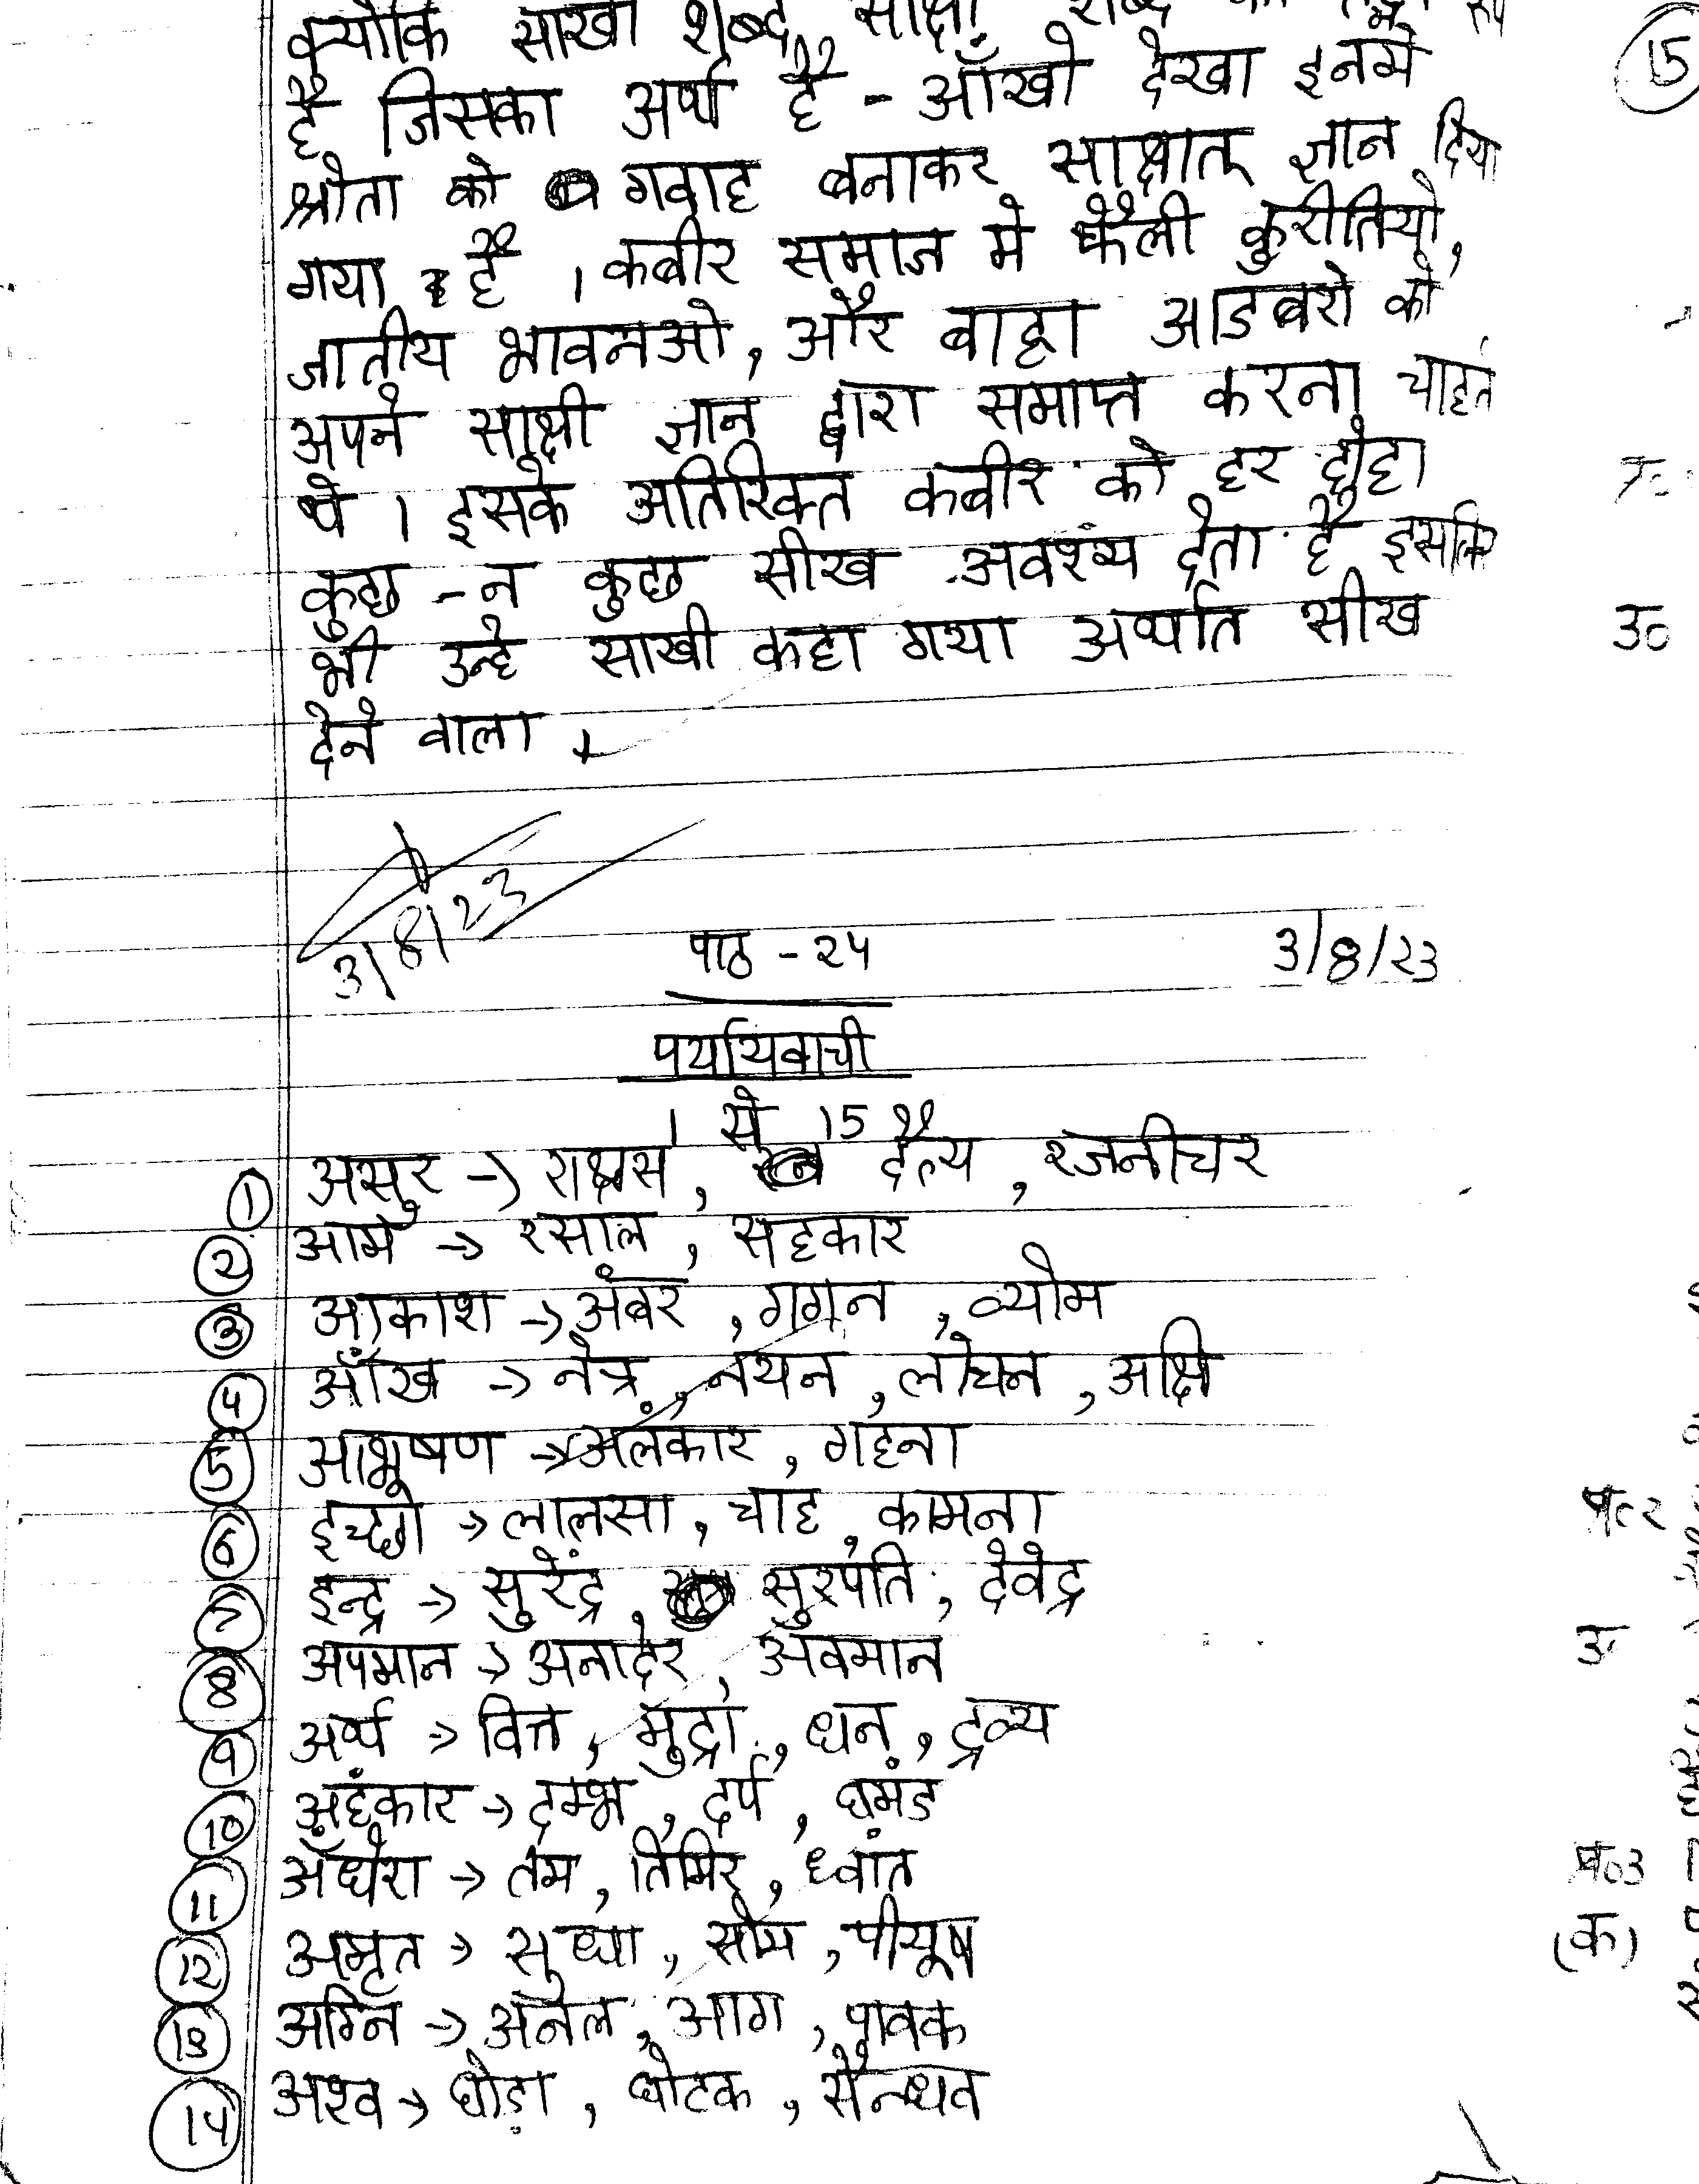 क्योकि साखी शब्द साक्षी शब्द
है जिसका अर्थ है - आँखो देखा इनमे
श्रोता को गवाह बनाकर साक्षात ज्ञान दिया
गया है । कबीर समाज मे फैली कुरीतियो,
जातीय भावनओ, और बाह्रा आडंबरो को
अपने साक्षी ज्ञान द्वारा समाप्त करना चाहते
थे । इसके अतिरिक्त कबीर को हर दोहा
कुछ - न कुछ सीख अवश्य देता है इसलिए
भी उन्हे साखी कहा गया अर्थात सीख
देने वाला ।
3/8/23
पाठ - २५ 3/8/२3
पर्यायवाची
1 से 15
① असुर → राक्षस, दैत्य, रजनीचर
② आम → रसाल, सहकार
③ आकाश → अंबर, गगन, व्योम
④ आँख → नेत्र, नयन, लोचन, अक्षि
⑤ आभूषण → अलंकार, गहना
⑥ इच्छा → लालसा, चाह, कामना
⑦ इन्द्र → सुरेंद्र, सुरपति, देवेंद्र
⑧ अपमान → अनादर, अवमान
⑨ अर्थ → वित्त, मुद्रा, धन, द्रव्य
⑩ अहंकार → दम्भ, दर्प, घमंड
⑪ अँधेरा → तम, तिमिर, ध्वांत
⑫ अमृत → सुधा, सोम, पीयूष
⑬ अग्नि → अनल, आग, पावक
⑭ अश्व → घोड़ा, घोटक, सैन्धव
15
उ०
प्र०२
उ०
प्र०3
(क)